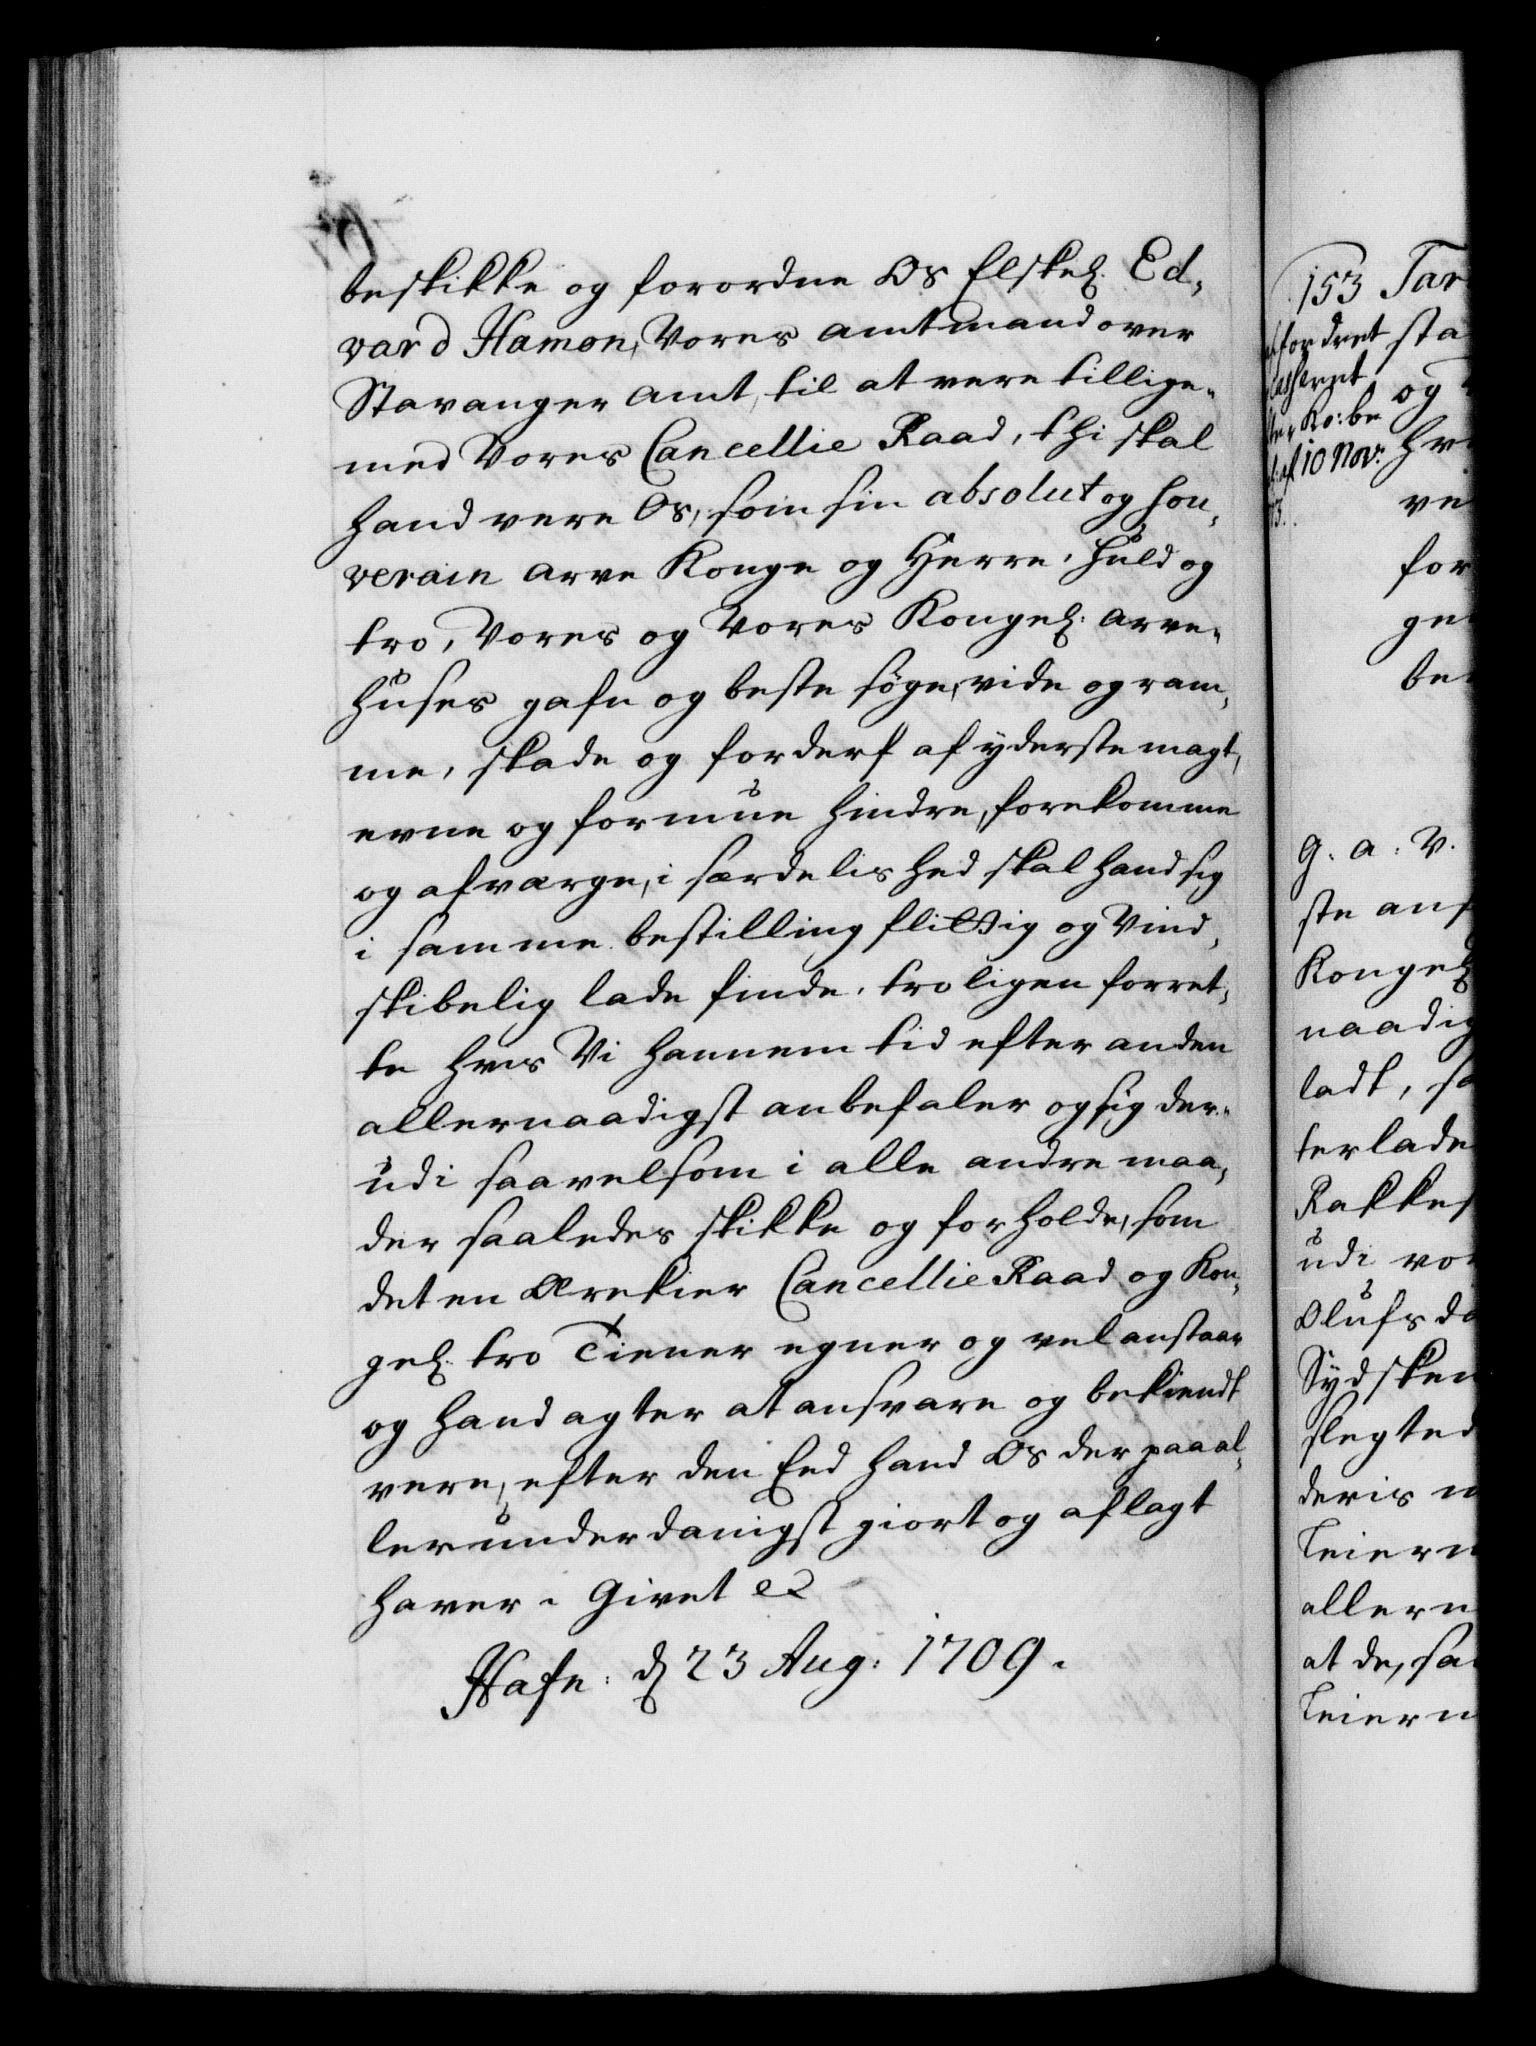 beskikke og forordne Os Elskel. Ed,
vard Hamon, Vores Amtmand over
Stavanger Amt, til at vere tillige,
med Vores Cancellie Raad, thi skal
hand vere Os, som sin absolut og sou,
verain Arve Konge og Herre, huld og
tro, Vores og Vores Kongel. Arve,
huses gafn og beste søge, vide og ram,
me, skade og forderf af yderste magt,
evne og formue hindre, forekomme
og afværge, i særdelished skal hand sig
i samme bestilling flittig og Vind,
skibelig lade finde, troligen forret,
te hvis Vi hannem tid efter anden
allernaadigst anbefaler og sig der,
udi saavelsom i alle andre maa,
der saaledes skikke og forholde, som
det en Ærekier Cancellie Raad og Kon,
gel. tro Tiener egner og vel anstaar
og hand agter at ansvare og bekiendt
vere, efter den Eed hand Os der paa al,
lerunderdanigst giort og aflagt
haver. Givet etc
Hafn: d 23 Aug: 1709.
153 Tar
fordret sta
og
Ko: be
10 Nov: hv
ve
for
ge
be
G. A. V.
ste an
Kongel
naadig
ladt, sa
terlade
Rakkes
udi vo
Olufs da
Sydsken
slegted
deris
Teiern
allern
at de, sa
Teiern